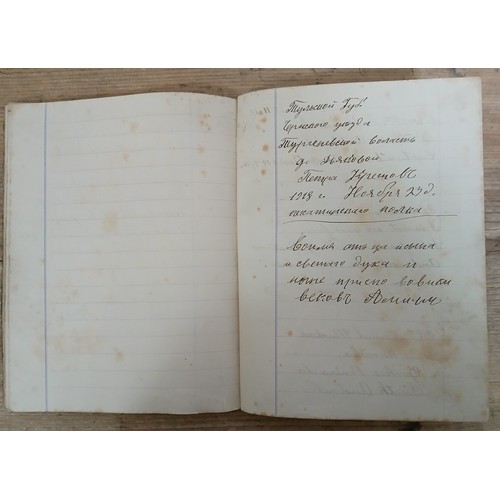 Тульской Губ.
Чернского уезда
Тургеневской Волость
д. Дьяковой
Петра Кретовъ
1918 г. Ноября 23 д.
полка
Воимя отца исына
и светаго духа и
ныне присно вовики
вековъ Аминь